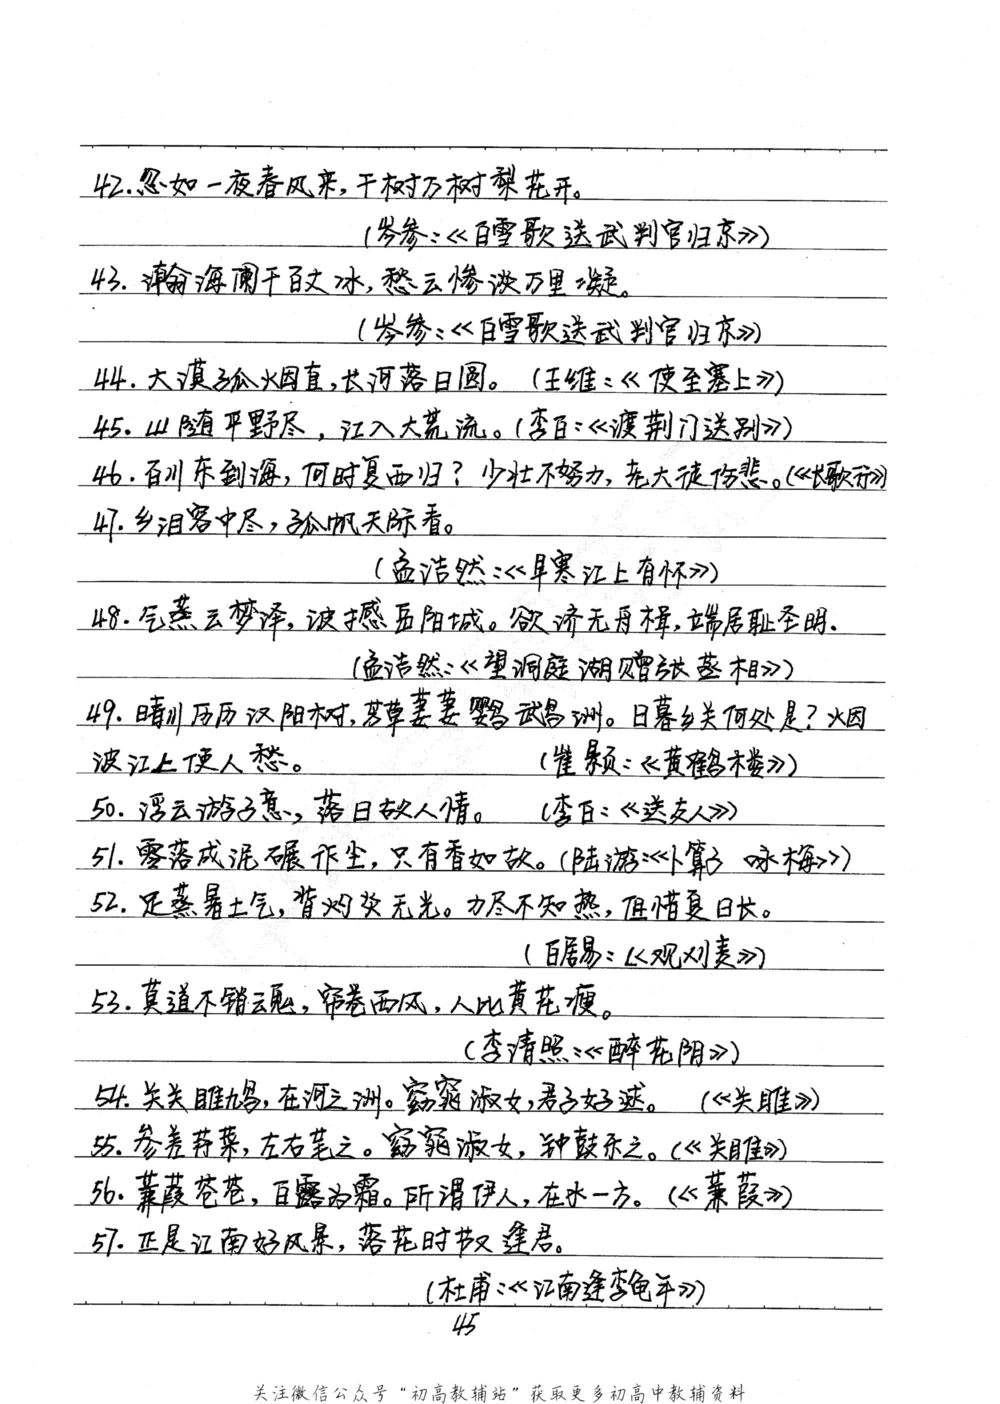 42.忽如一夜春风来,千树万树梨花开。
(岑参:《白雪歌送武判官归京》)
43.瀚海阑干百丈冰,愁云惨淡万里凝。
(岑参:《白雪歌送武判官归京》)
44.大漠孤烟直,长河落日圆。(王维:《使至塞上》)
45.山随平野尽,江入大荒流。(李白:《渡荆门送别》)
46.百川东到海,何时复西归?少壮不努力,老大徒伤悲。(《长歌行》)
47.乡泪客中尽,孤帆天际看。
(孟浩然:《早寒江上有怀》)
48.气蒸云梦泽,波撼岳阳城。欲济无舟楫,端居耻圣明.
(孟浩然:《望洞庭湖赠张丞相》)
49.晴川历历汉阳树,芳草萋萋鹦鹉洲。日暮乡关何处是?烟
波江上使人愁。(崔颢:《黄鹤楼》)
50.浮云游子意,落日故人情。(李白:《送友人》)
51.零落成泥碾作尘,只有香如故。(陆游:《卜算子 咏梅》)
52.足蒸暑土气,背灼炎天光。力尽不知热,但惜夏日长。
(白居易:《观刈麦》)
53.莫道不销魂,帘卷西风,人比黄花瘦。
(李清照:《醉花阴》)
54.关关雎鸠,在河之洲。窈窕淑女,君子好逑。(《关雎》)
55.参差荇菜,左右芼之。窈窕淑女,钟鼓乐之。(《关雎》)
56.蒹葭苍苍,白露为霜。所谓伊人,在水一方。(《蒹葭》)
57.正是江南好风景,落花时节又逢君。
(杜甫:《江南逢李龟年》)
45
关注微信公众号“初高教辅站”获取更多初高中教辅资料